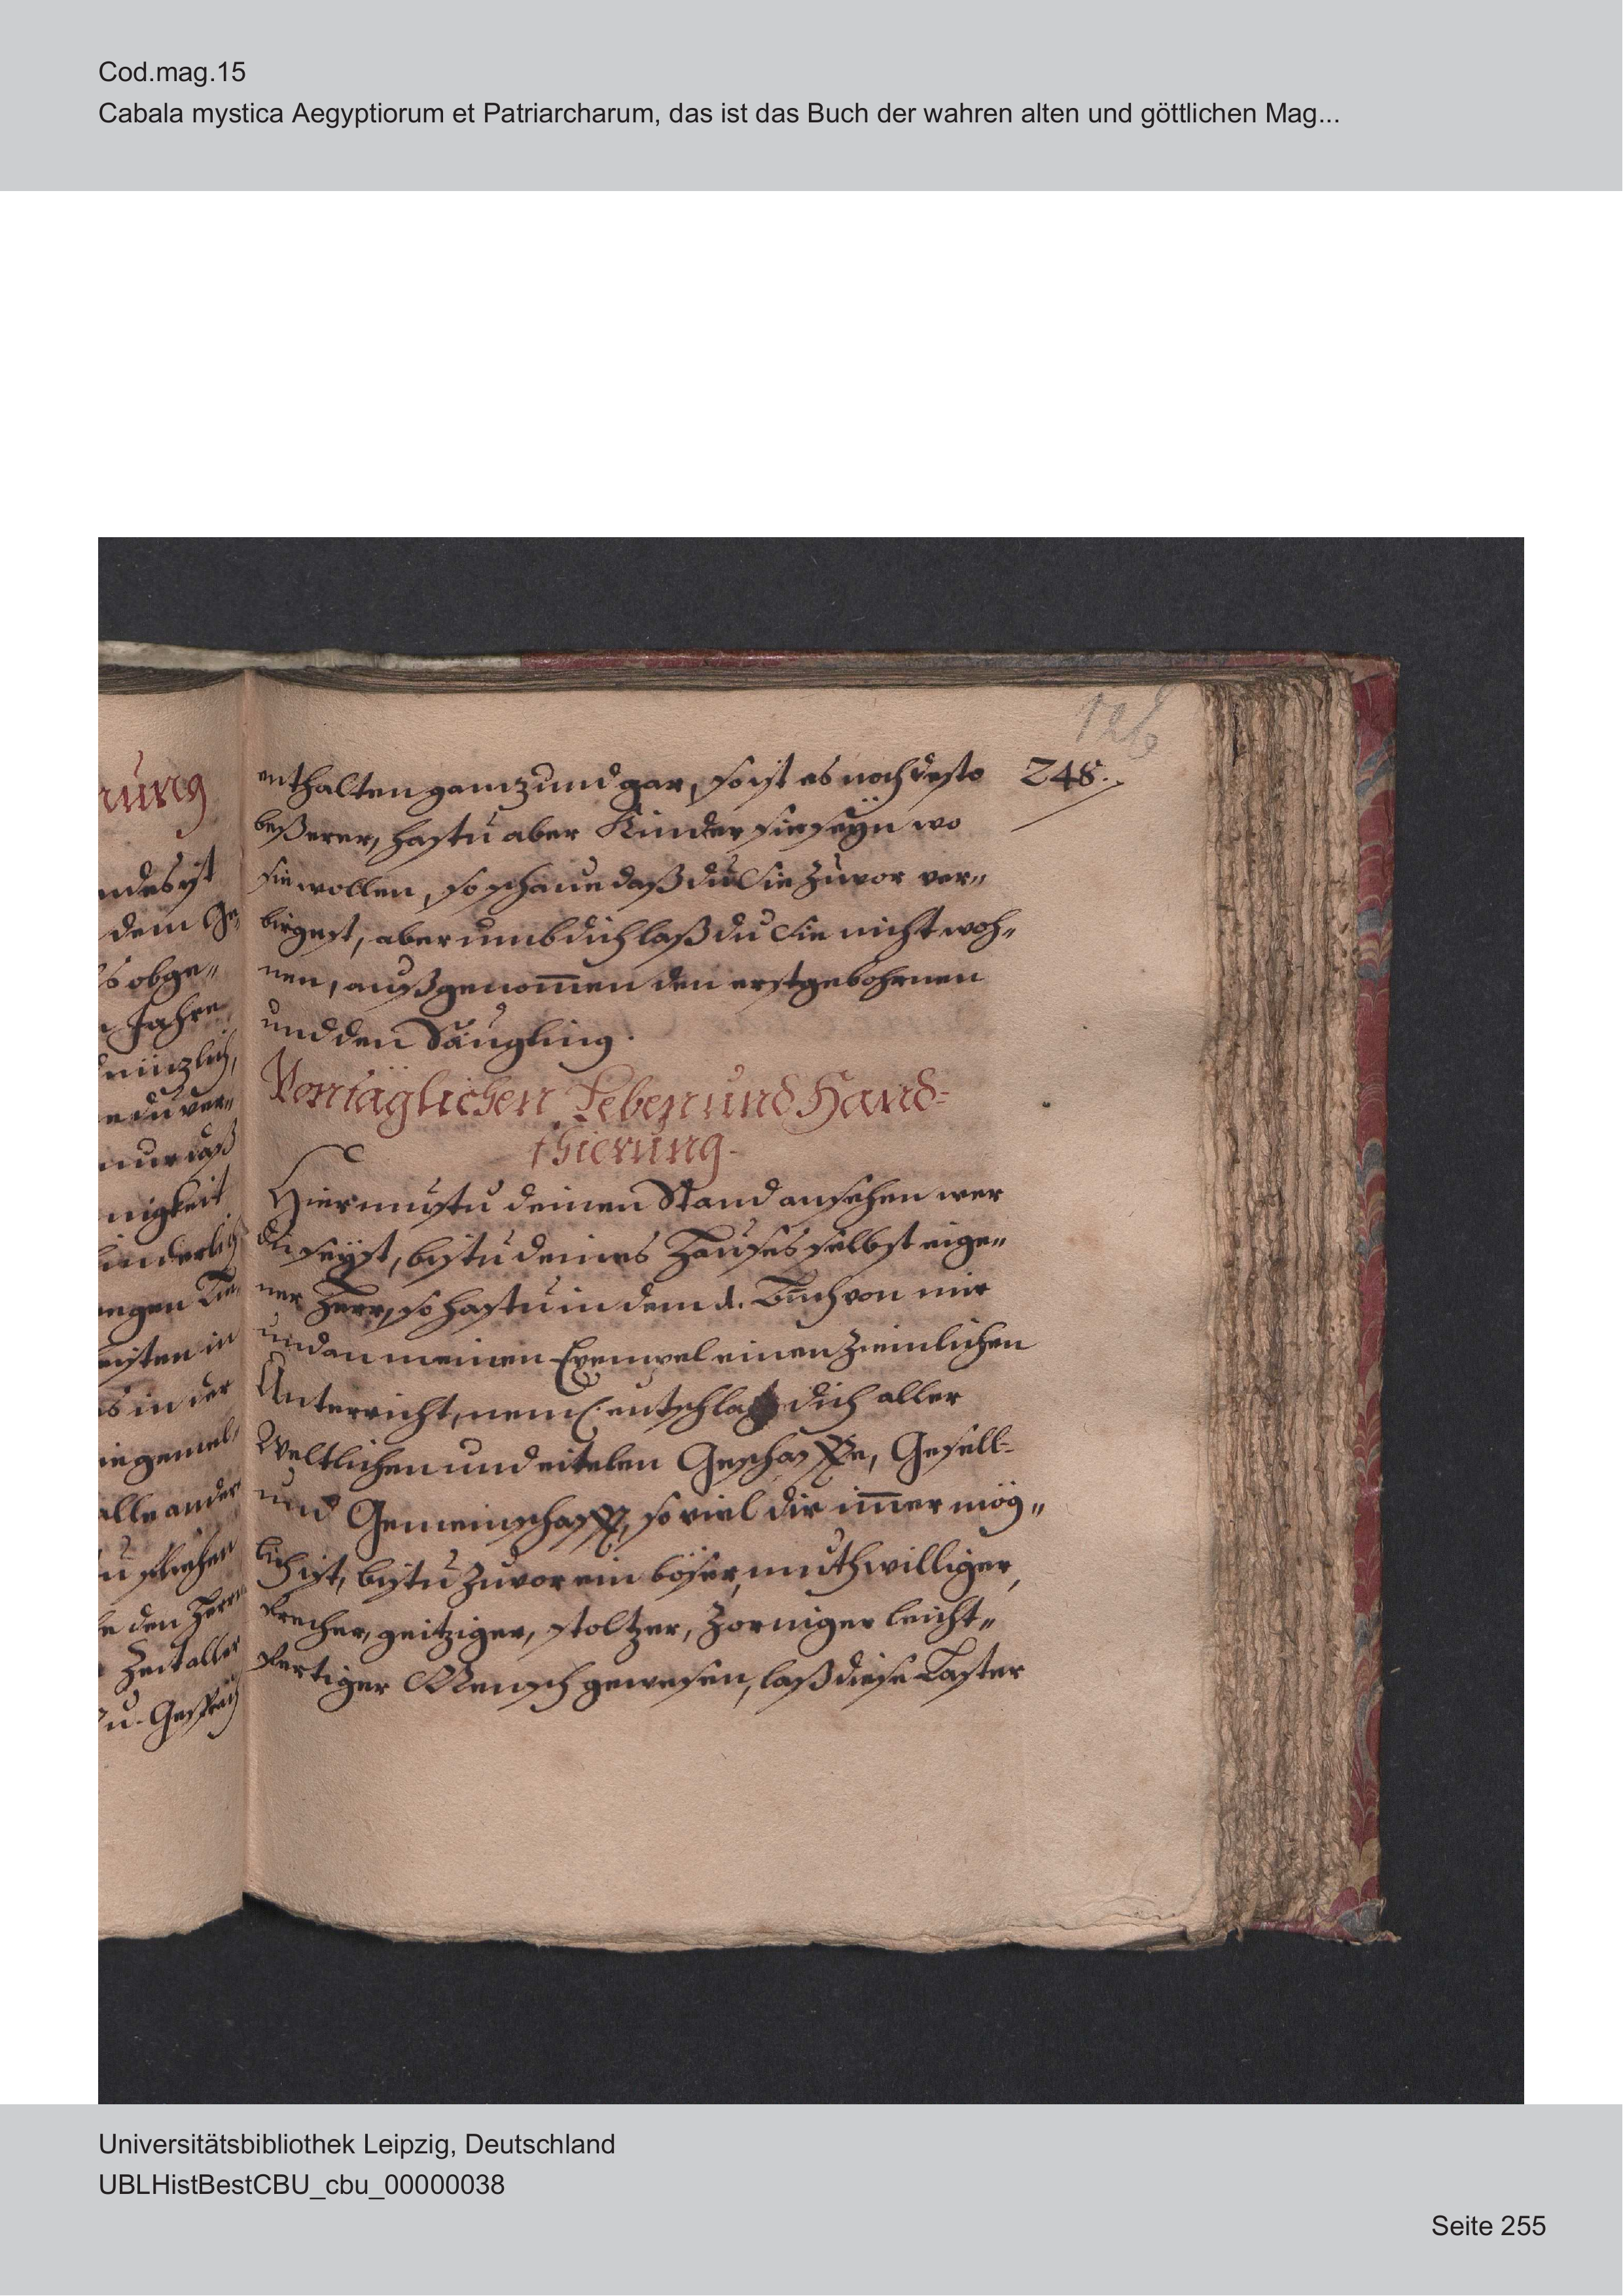 Cod.mag.15
Cabala mystica Aegyptiorum et Patriarcharum, das ist das Buch der wahren alten und göttlichen Mag...
126
248.
enthalten ganz und gar, so ist es noch desto
beßerer, hastu aber Kinder sie seyn wo
sie wollen, so schaue daß du Sie zuvor ver„
birgest, aber umb dich laß du Sie nicht woh„
nen, außgenom̅en den erstgebohrnen
und den Säugling.
Von täglichen Leben und Hand-
thierung.
Hier mustu deinen Stand ansehen wer
du seyst, bistu deines Hauses selbst eige„
ner Herr, so hastu in dem 1. Buch von mir
und an meinen Exempel einen ziemlichen
Unterricht, neml. entschlag dich aller
Weltlichen und eitelen Geschäffte, Gesell-
und Gemeinschafft, so viel dir im̅er mög„
lich ist, bistu zuvor ein böser, muthwilliger,
frecher, geitziger, stoltzer, zorniger leicht„
fertiger Mensch gewesen, laß diese Laster
rung
dem Ge„
obge„
Jahre
du ver„
nur daß
nigkeit
in der
alle ander
den Herrn
Zeit aller
u. Gespräch
Universitätsbibliothek Leipzig, Deutschland
UBLHistBestCBU_cbu_00000038
Seite 255